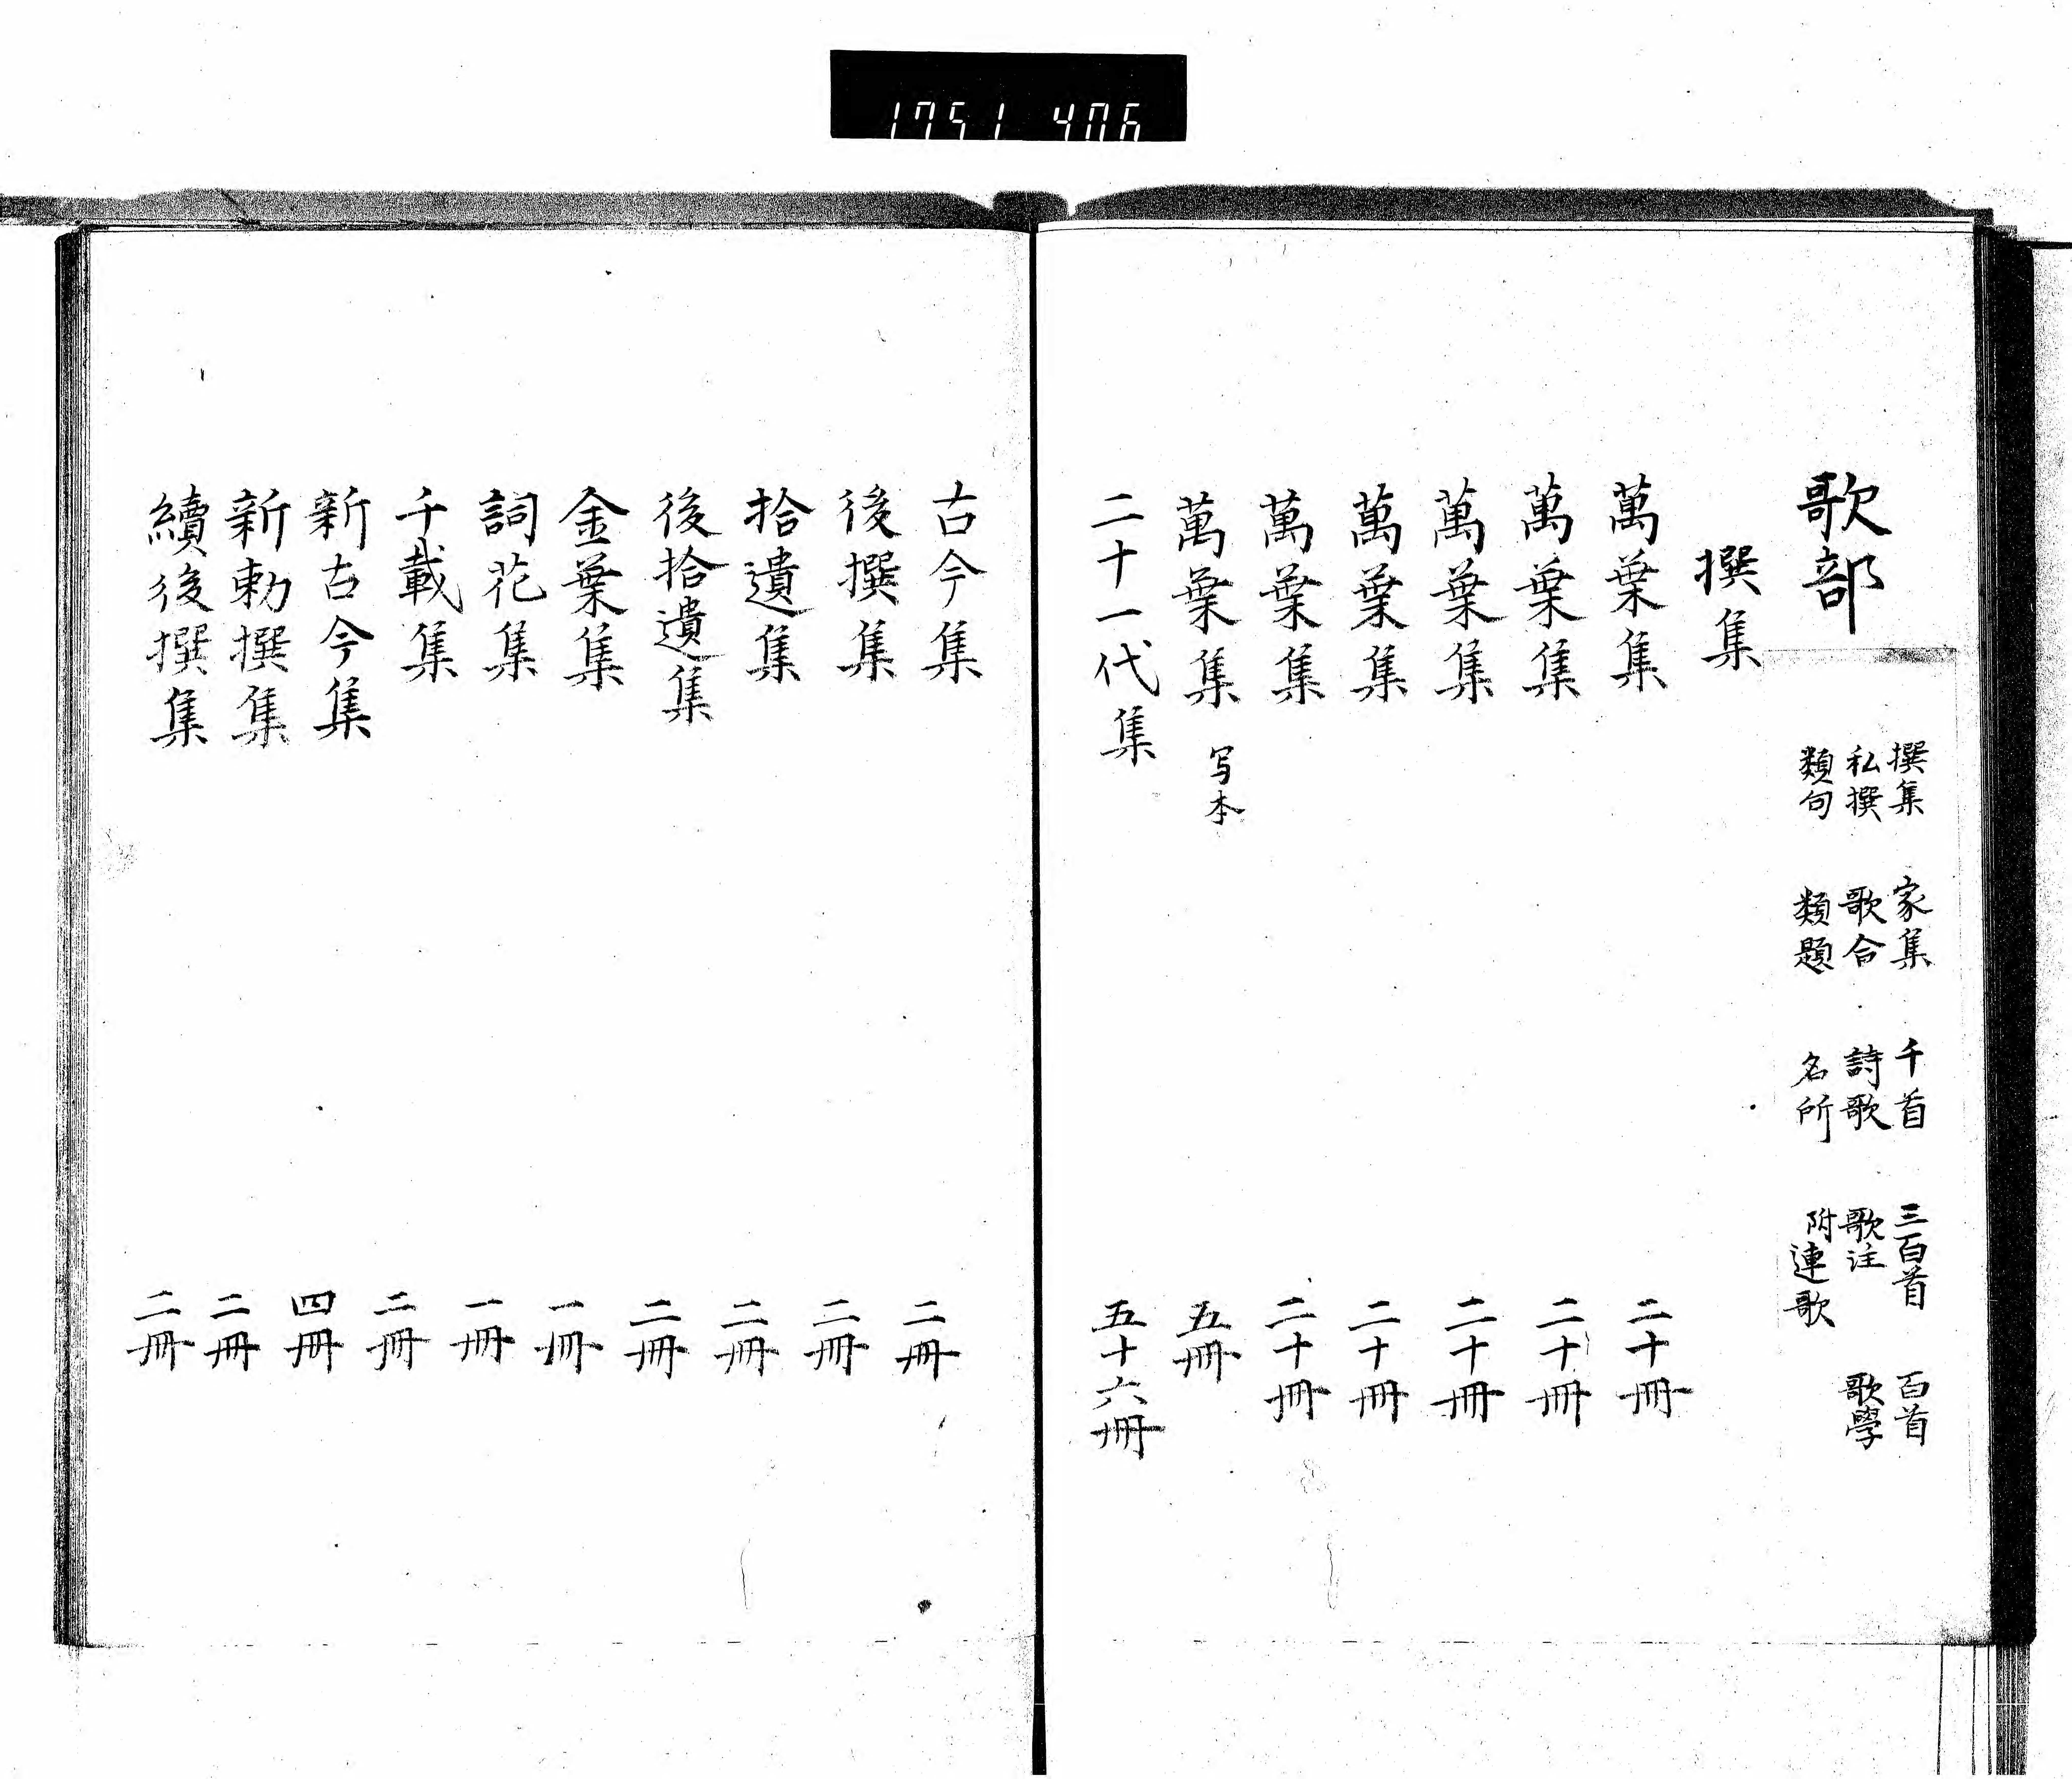 1751 406
歌部
撰集 家集 千首 三百首 百首
私撰 歌合 詩歌 歌注 歌學
類句 類題 名所 附連歌
撰集
萬葉集 二十冊
萬葉集 二十冊
萬葉集 二十冊
萬葉集 二十冊
萬葉集 二十冊
萬葉集 写本 五冊
二十一代集 五十六冊
古今集 二冊
後撰集 二冊
拾遺集 二冊
後拾遺集 二冊
金葉集 一冊
詞花集 一冊
千載集 二冊
新古今集 四冊
新勅撰集 二冊
續後撰集 二冊